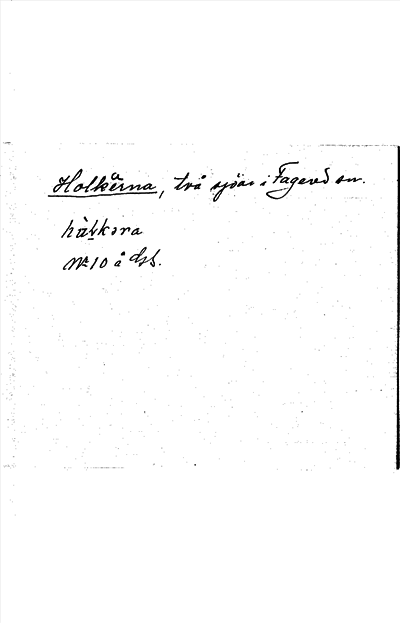 Holkärna, två sjöar i Fagered sn.
hàl̥kəra
№ 10 å Gsk.